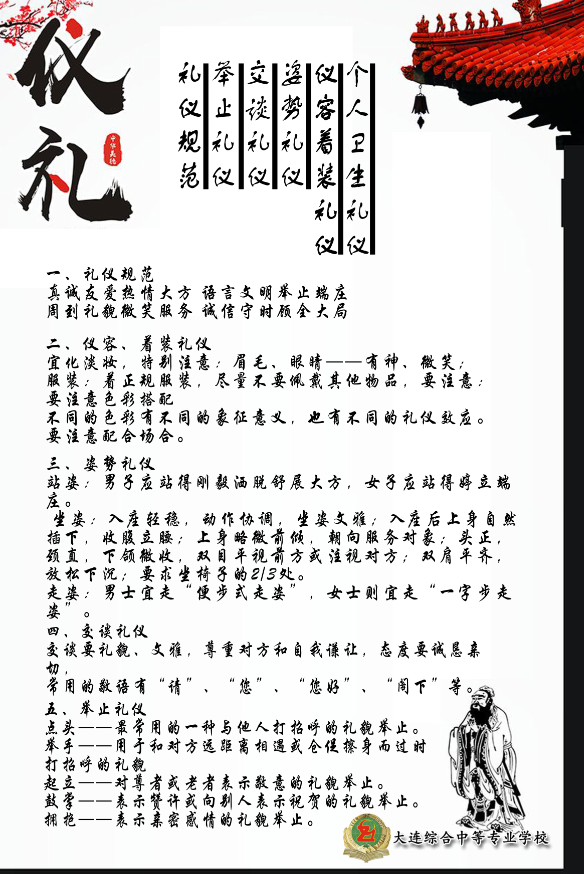 仪
礼
中华美德
礼仪规范
举止礼仪
交谈礼仪
姿势礼仪
仪容着装礼仪
个人卫生礼仪
一、礼仪规范
真诚友爱热情大方 语言文明举止端庄
周到礼貌微笑服务 诚信守时顾全大局
二、仪容、着装礼仪
宜化淡妆，特别注意：眉毛、眼睛——有神、微笑；
服装：着正规服装，尽量不要佩戴其他物品，要注意：
要注意色彩搭配
不同的色彩有不同的象征意义，也有不同的礼仪效应。
要注意配合场合。
三、姿势礼仪
站姿：男子应站得刚毅洒脱舒展大方，女子应站得婷立端
庄。
坐姿：入座轻稳，动作协调，坐姿文雅；入座后上身自然
插下，收腹立腰；上身略微前倾，朝向服务对象；头正，
颈直，下颌微收，双目平视前方或注视对方；双肩平齐，
放松下沉；要求坐椅子的2/3处。
走姿：男士宜走“便步式走姿”，女士则宜走“一字步走
姿”。
四、交谈礼仪
交谈要礼貌、文雅，尊重对方和自我谦让，态度要诚恳亲
切，
常用的敬语有“请”、“您”、“您好”、“阁下”等。
五、举止礼仪
点头——最常用的一种与他人打招呼的礼貌举止。
举手——用于和对方远距离相遇或仓促擦身而过时
打招呼的礼貌
起立——对尊者或老者表示敬意的礼貌举止。
鼓掌——表示赞许或向别人表示祝贺的礼貌举止。
拥抱——表示亲密感情的礼貌举止。
大连综合中等专业学校